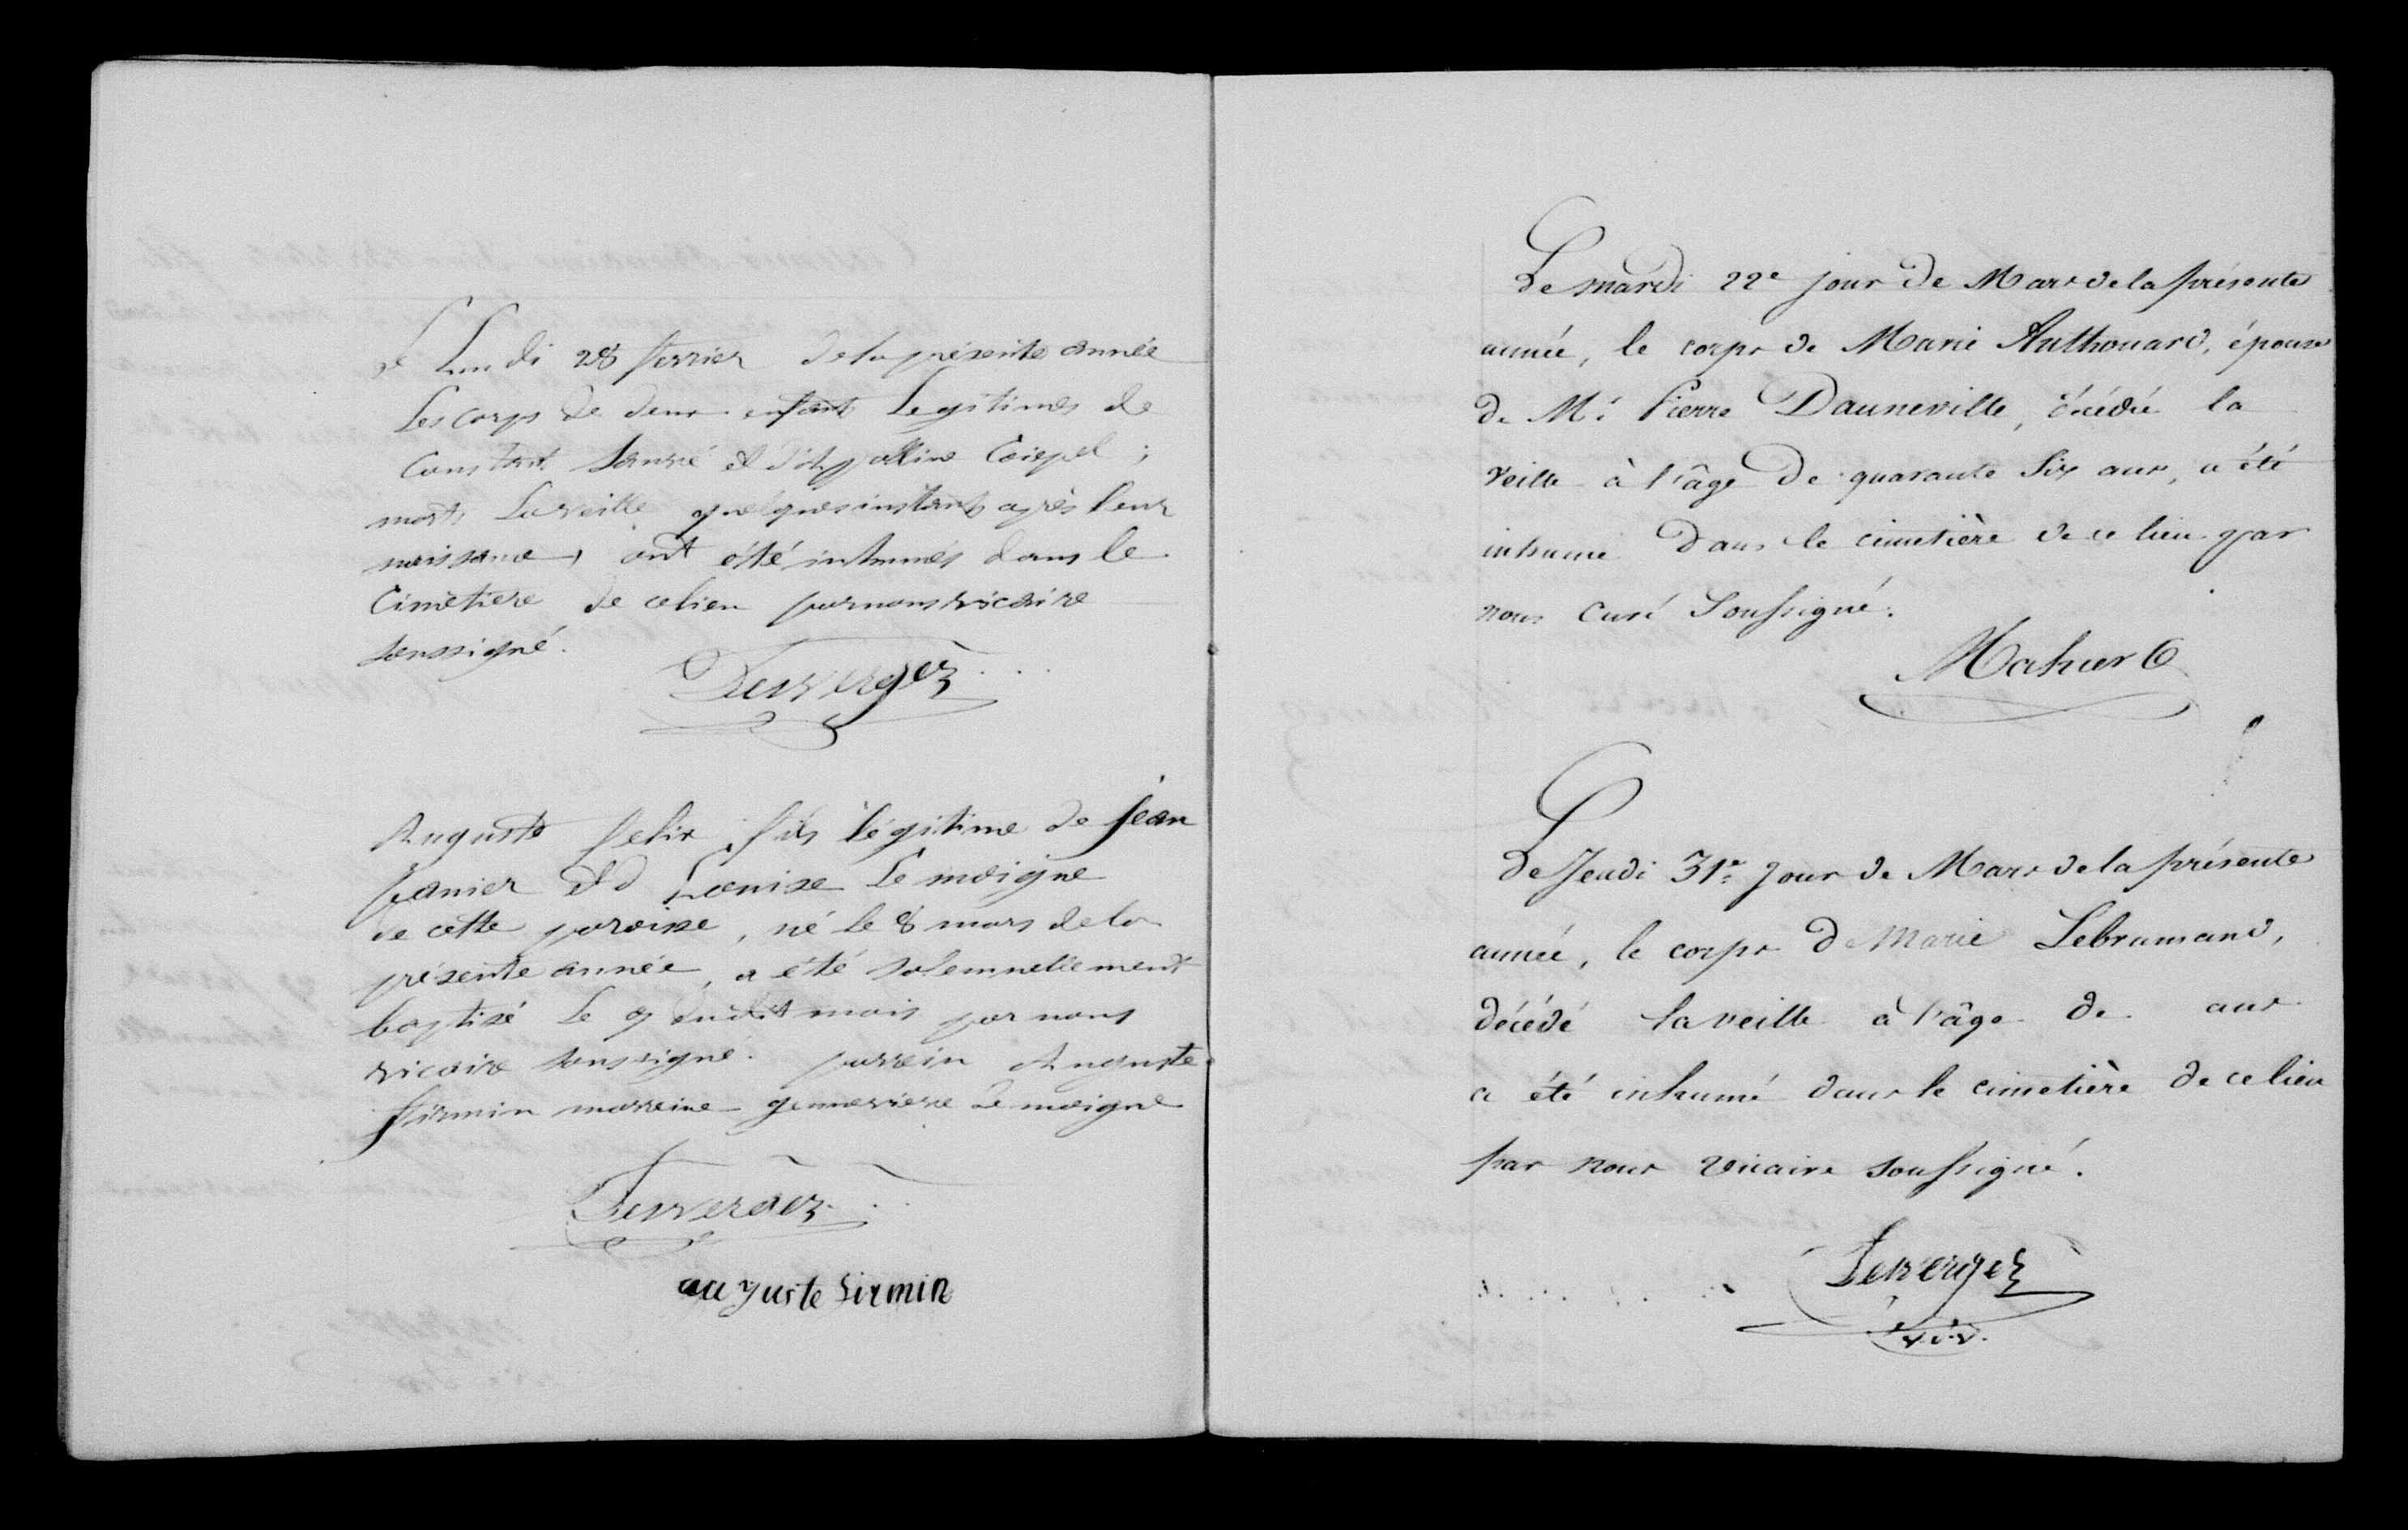 Le Lundi 28 fevrier de la présente année
Les corps de deux enfants Legitimes de
Constant et d'Appolline Coispel ;
morts La veille quelques instants après leur
naissance, ont été inhumés dans le
Cimetiere de ce lieu par nous vicaire
soussigné.
Desverger
Auguste felix, fils légitime de jean
fanier et d Louise Le moigne
de cette paroisse, né le 8 mars de la
présente année, a été solemnellement
baptisé Le 9 dudit mois par nous
vicaire soussigné. parrein Auguste
firmin marreine genneviere Le moigne
Desverger
auguste firmin
Le mardi 22e jour de Mars de la présente
année, le corps de Marie Anthouard, épouse
de Mr. Pierre Dauneville, décédé la
veille à l'âge de quarante six ans, a été
inhumé Dans le cimetière de ce lieu par
nous Curé Soussigné.
Mahier C
Le Jeudi 31e jour de Mars de la présente
année, le corps De Marie Lebrumand,
décédé la veille à l'âge de ans
a été inhumé dans le cimetière de ce lieu
par nous vicaire soussigné.
Desverger
vic.